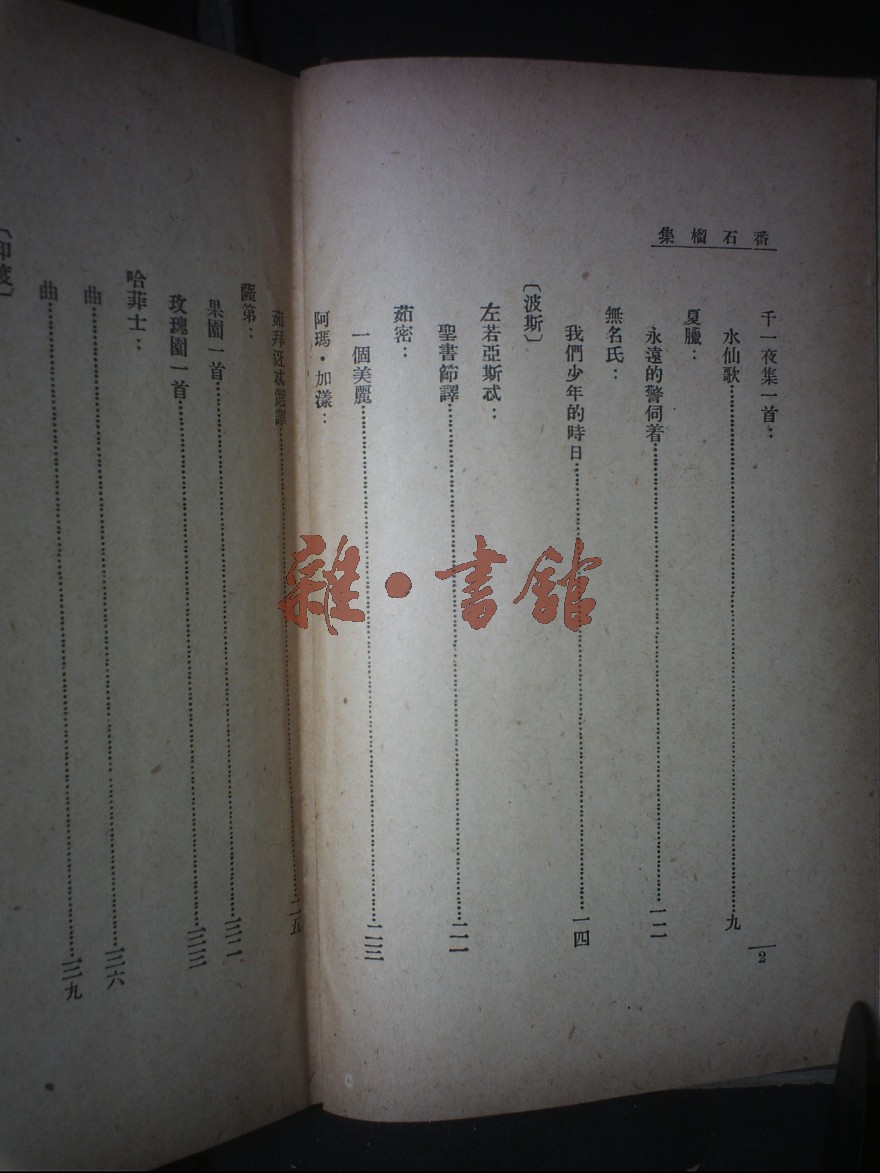 番石榴集
千一夜集一首：
水仙歌……九
夏臘：
永遠的警伺着……一二
無名氏：
我們少年的時日……一四
〔波斯〕
左若亞斯忒：
聖書節譯……二一
茹密：
一個美麗……二三
阿瑪・加漾：
茹拜迓忒選譯……二五
薩第：
果園一首……三二
玫瑰園一首……三三
哈菲士：
曲……三六
曲……三九
〔印度〕
2
雜・書館